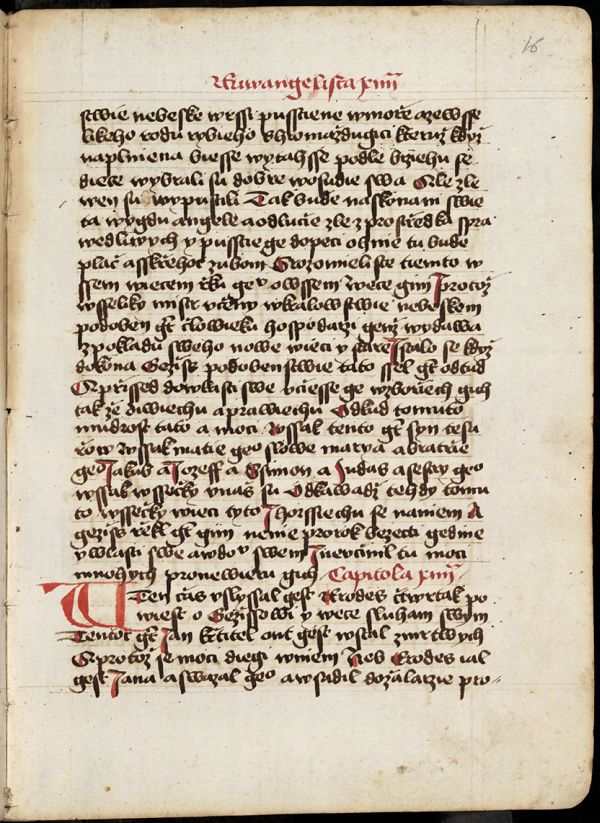 16
Ewangelista xiiii
stwie nebeske wrssi pusstiene wmorze azewsse
likeho rodu rybieho shromazdugici kteruz kdyz
naplniena biesse wytahsse podle brziehu se
diece wybrali su dobre wosudie swa Ale zle
wen su wypustili Tak bude naskonani swie
ta wygdu angele aodlucie zle zprostredka spra
wedliwych y pusstie ge dopeci ohnie tu bude
plac askrzehot zubom Srozomieli ste tiemto w
ssem wiecem rzku geo owssem wece gim Protoz
wsseliky mistr uceny wkralowstwie nebeskem
podoben gt czlowieku hospodarzi genz wydawa
zpokladu sweho nowe wieci y stare Istalo se kdyz
dokona Gezis podobenstwie tato ssel gt odtud
A prissed dowlasti swe uciesse ge wzboriech gich
tak ze diwiechu a prawiechu Odkud tomuto
mudrost tato a moci Wssak tento gt syn tesa
row wssak matie geo slowe maria a bratrie
geo Jakub a Jozeff a Simon a Judas a sestry geo
wssak wssecky unas su Odkawadz tehdy tomu
to wssecky wieci tyto Ihorssiechu se naniem A
gezis rzekl gt gim nenie prorok bezecti gedine
wwlasti swe awdou swem Inevcinil tu moci
mnohych pronewieru gich Capitola xiiii
Ten czas uslyssal gest Erodes cztwrtak po
wiest o Gezissowi y wece sluham swym
Tentot gt Jan krtitel ont gest wstal zmrtwych
A protoz se moci diegi wniem Neb Erodes ial
gest Jana aswazal geo awsadil dozalarzie pro-